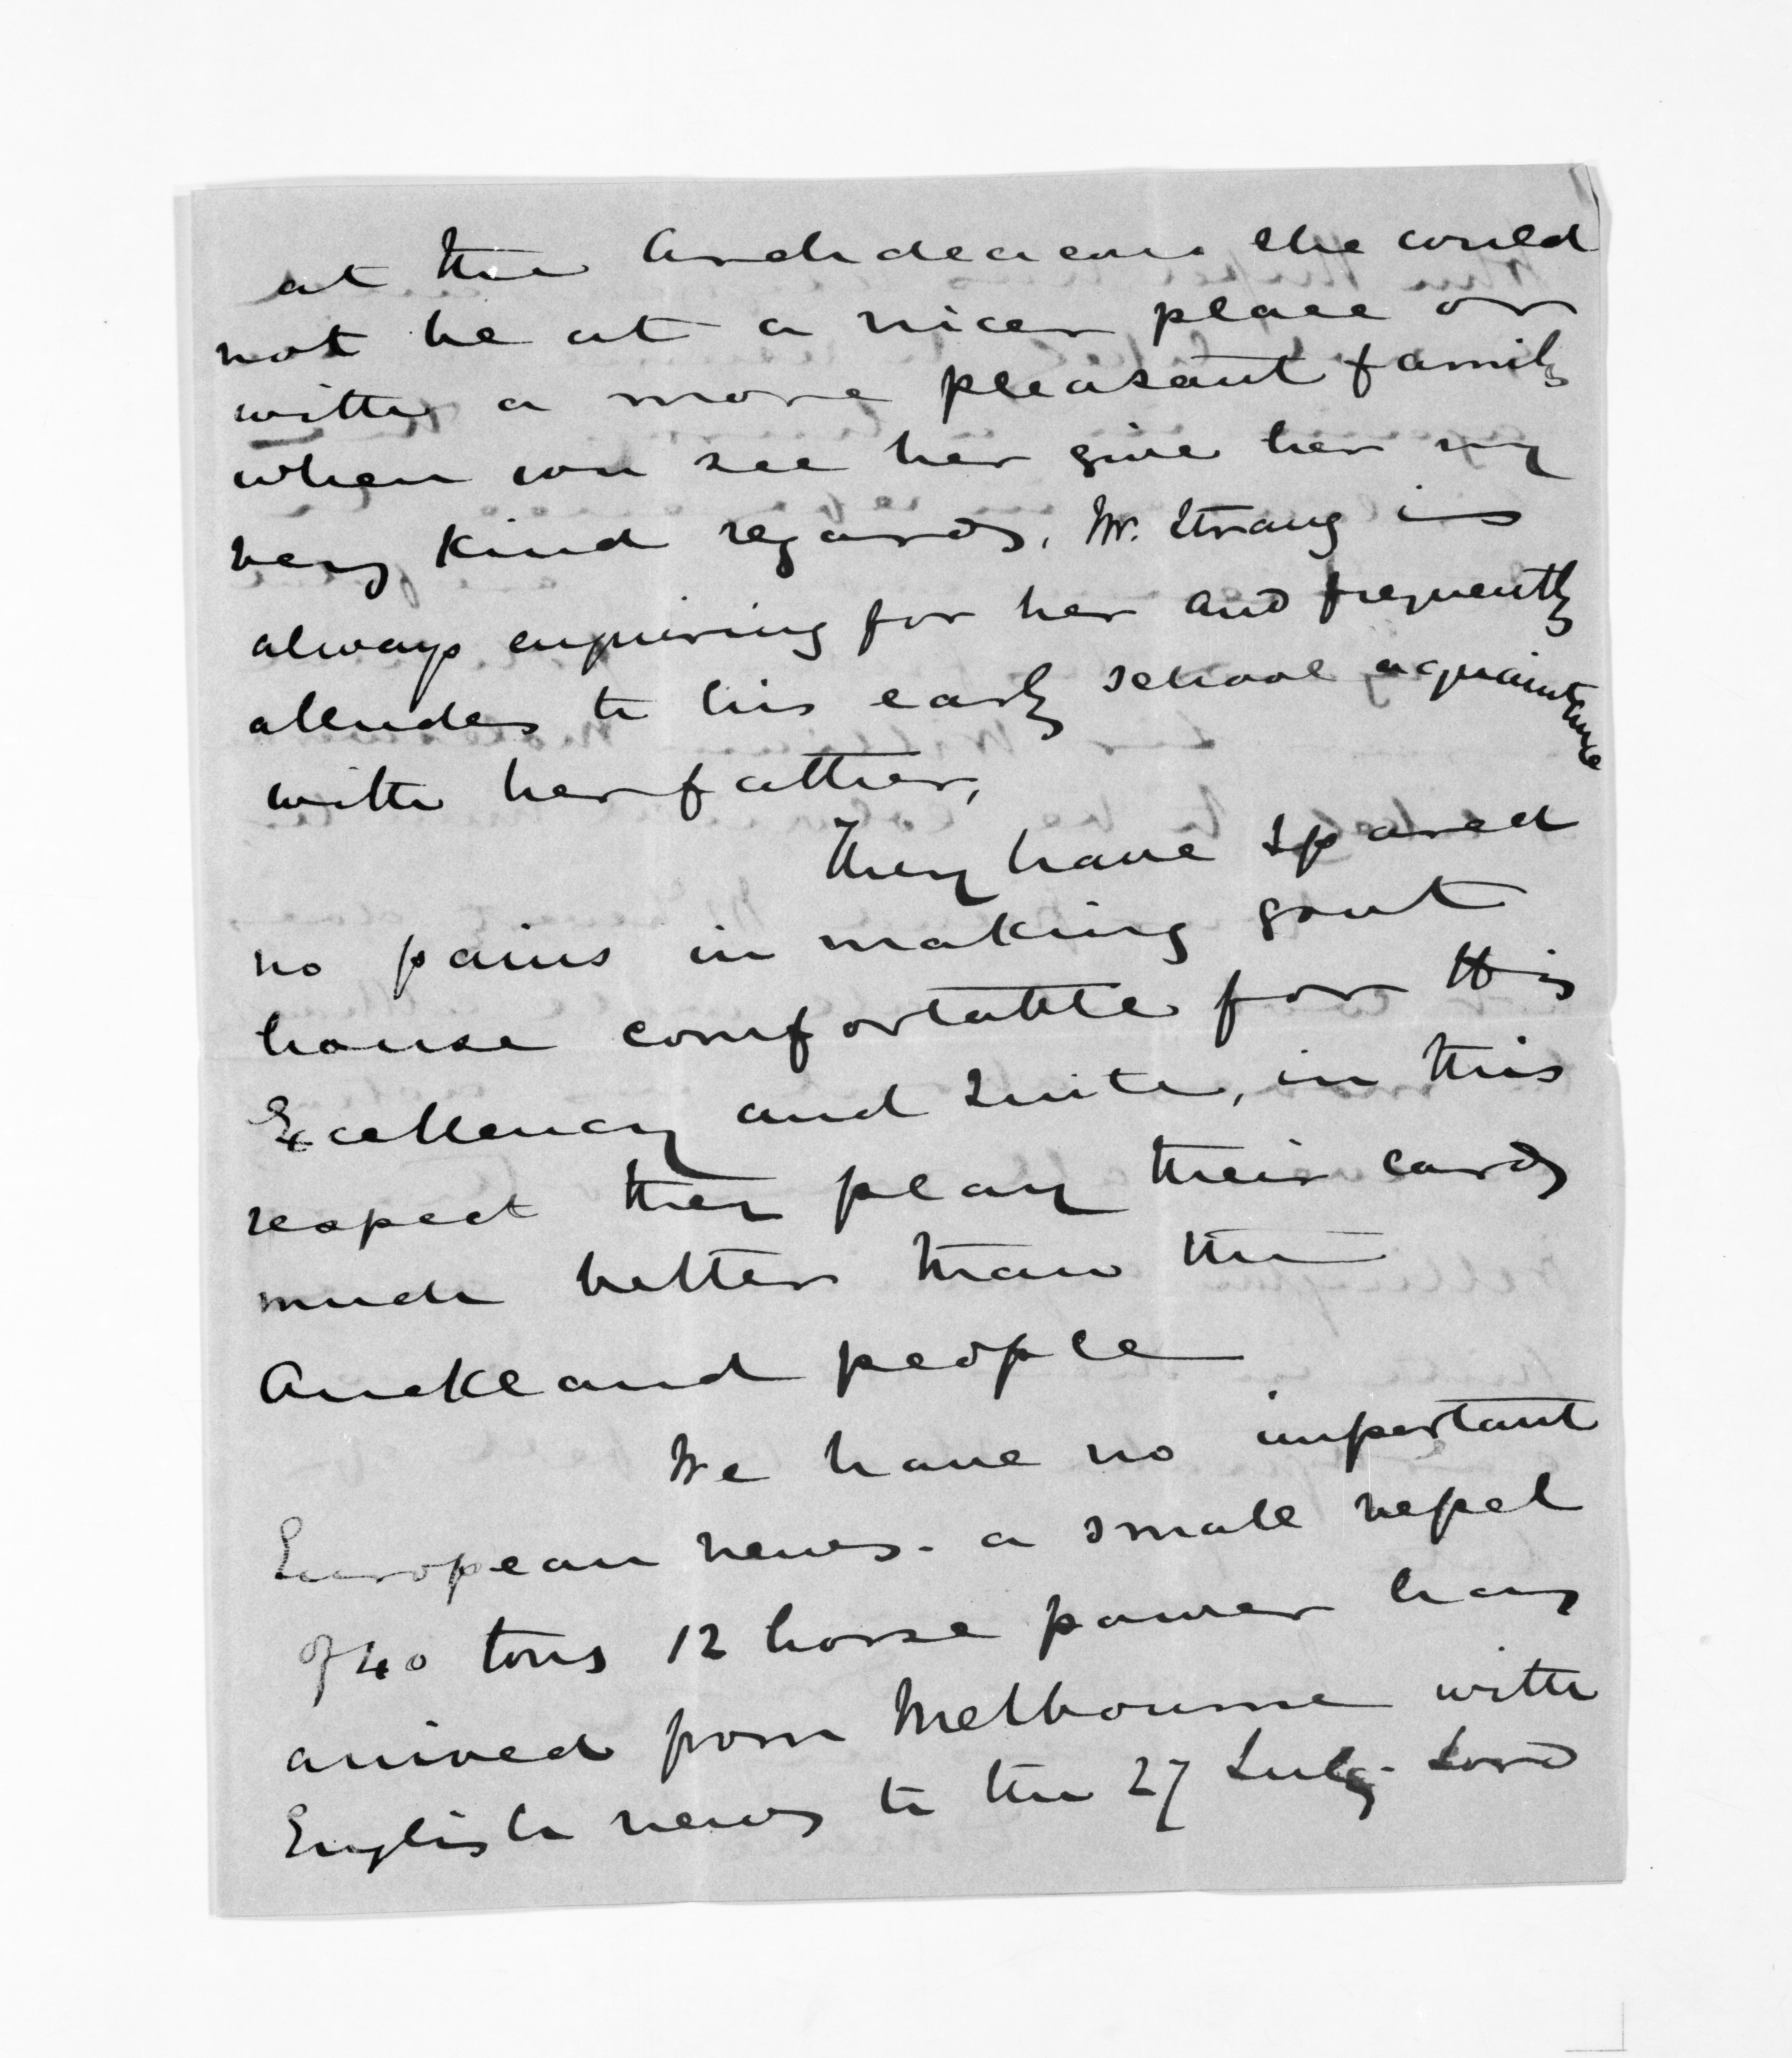 at the Archdeacons she could
not be at a nicer place or
with a more pleasant family
when you see her give her my
very kind regards, Mr. Strang is
always enquiring for her and frequently
alludes to his early school acquaintance
with her father,
They have spared
no pains in making govt
house comfortable for His
Excellency and Suite, in this
respect they play their cards
much better than the
Auckland people
We have no important
European news - a small vessel
of 40 tons 12 horse power has
arrived from Melbourne with
English news to the 27 July - Lord